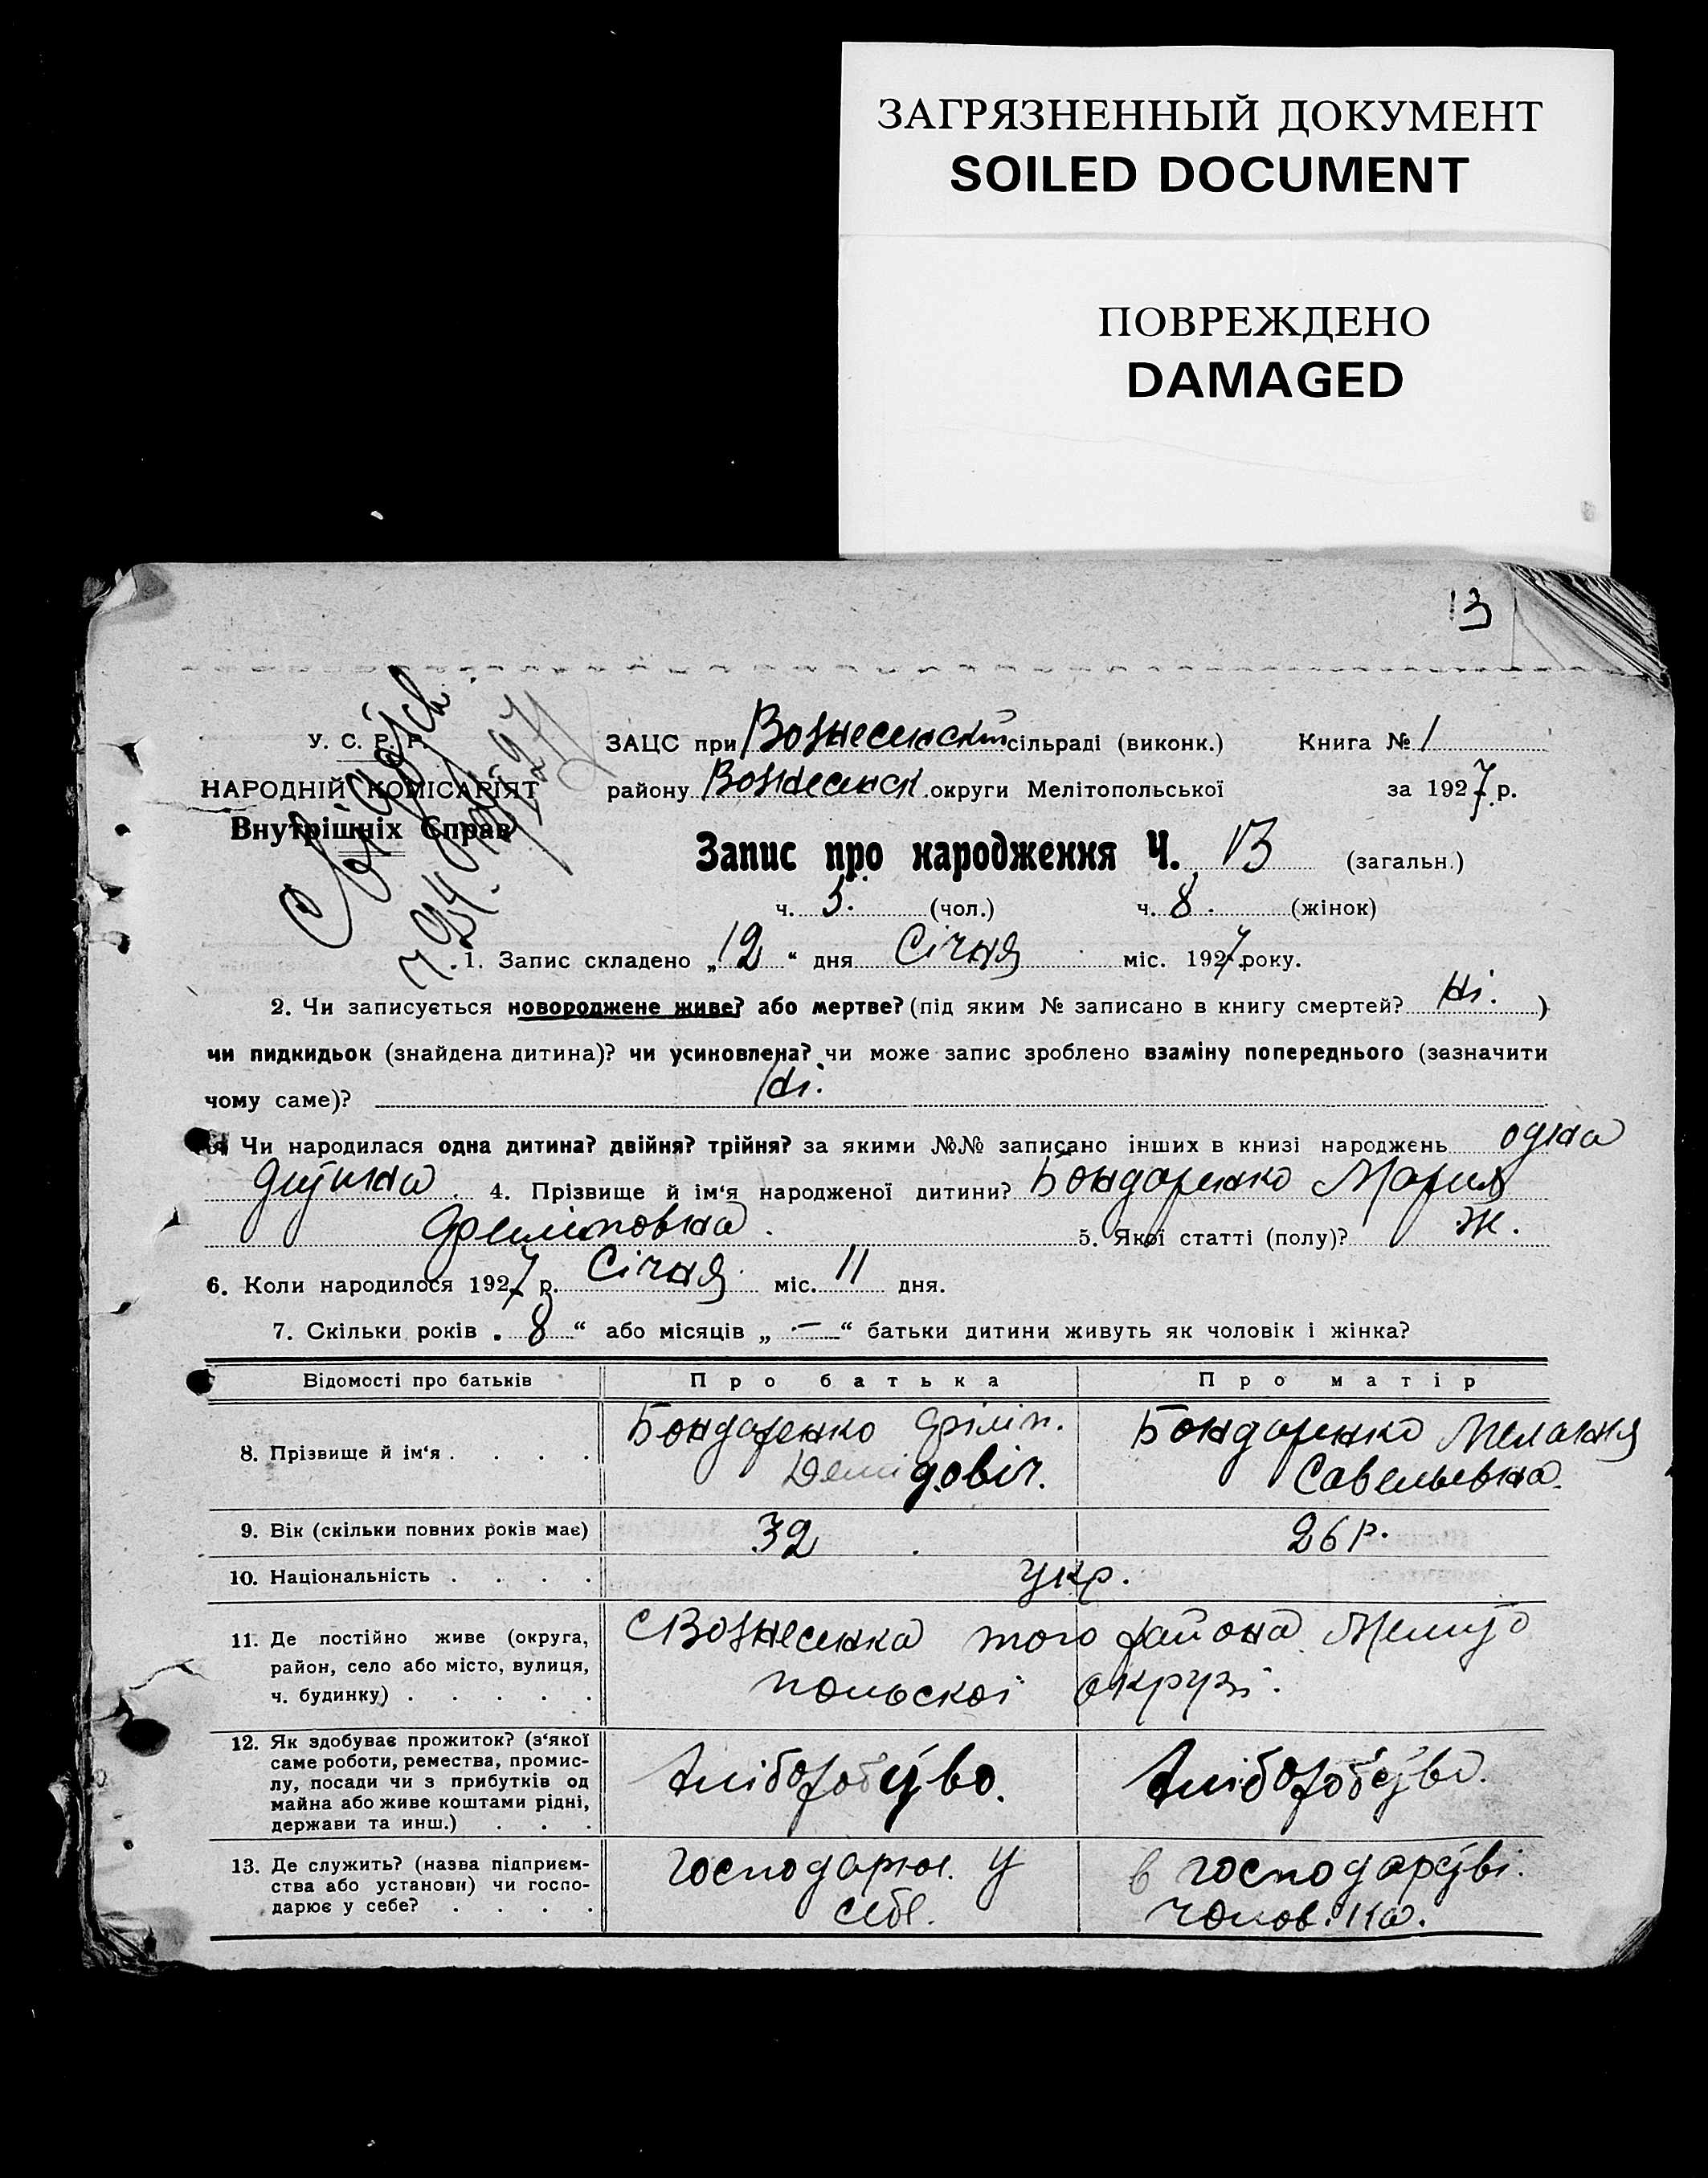 ЗАГРЯЗНЕННЫЙ ДОКУМЕНТ
SOILED DOCUMENT
ПОВРЕЖДЕНО
DAMAGED
13
У. С. Р. Р.
НАРОДНІЙ КОМІСАРІЯТ
Внутрішніх Справ
ЗАЦС при Вознесенській сільраді (виконк.) Книга № 1
району Вознесенськ. округи Мелітопольської за 1927 р.
Запис про народження Ч. 13 (загальн.)
ч. 5. (чол.) ч. 8. (жінок)
1. Запис складено „12“ дня Січня міс. 1927 року.
2. Чи записується новороджене живе? або мертве? (під яким № записано в книгу смертей? Ні. )
чи пидкидьок (знайдена дитина)? чи усиновлена? чи може запис зроблено взаміну попереднього (зазначити
чому саме)? Ні.
3. Чи народилася одна дитина? двійня? трійня? за якими №№ записано інших в книзі народжень одна
дитина. 4. Прізвище й ім‘я народженої дитини? Бондаренко Мария
Филіповна. 5. Якої статті (полу)? Ж.
6. Коли народилося 1927 р. Січня міс. 11 дня.
7. Скільки років „8“ або місяців „—“ батьки дитини живуть як чоловік і жінка?
Відомості про батьків Про батька Про матір
8. Прізвище й ім‘я . . . . Бондаренко Філіп. Бондаренко Меланія
Демідовіч. Савельевна.
9. Вік (скільки повних років має) 32 26 р.
10. Національність . . . . укр.
11. Де постійно живе (округа,
район, село або місто, вулиця,
ч. будинку) . . . . .
с Вознесенка того района Мелито
польскої окрузі.
12. Як здобуває прожиток? (з‘якої
саме роботи, ремества, промис-
лу, посади чи з прибутків од
майна або живе коштами рідні,
держави та инш.) . . .
Хліборобство. Хліборобство.
13. Де служить? (назва підприєм-
ства або установи) чи госпо-
дарює у себе? . . . .
господарює у в господарстві
себе. чолов.ка.